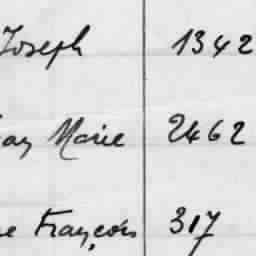 Joseph 1342
Marie 2462
François 317